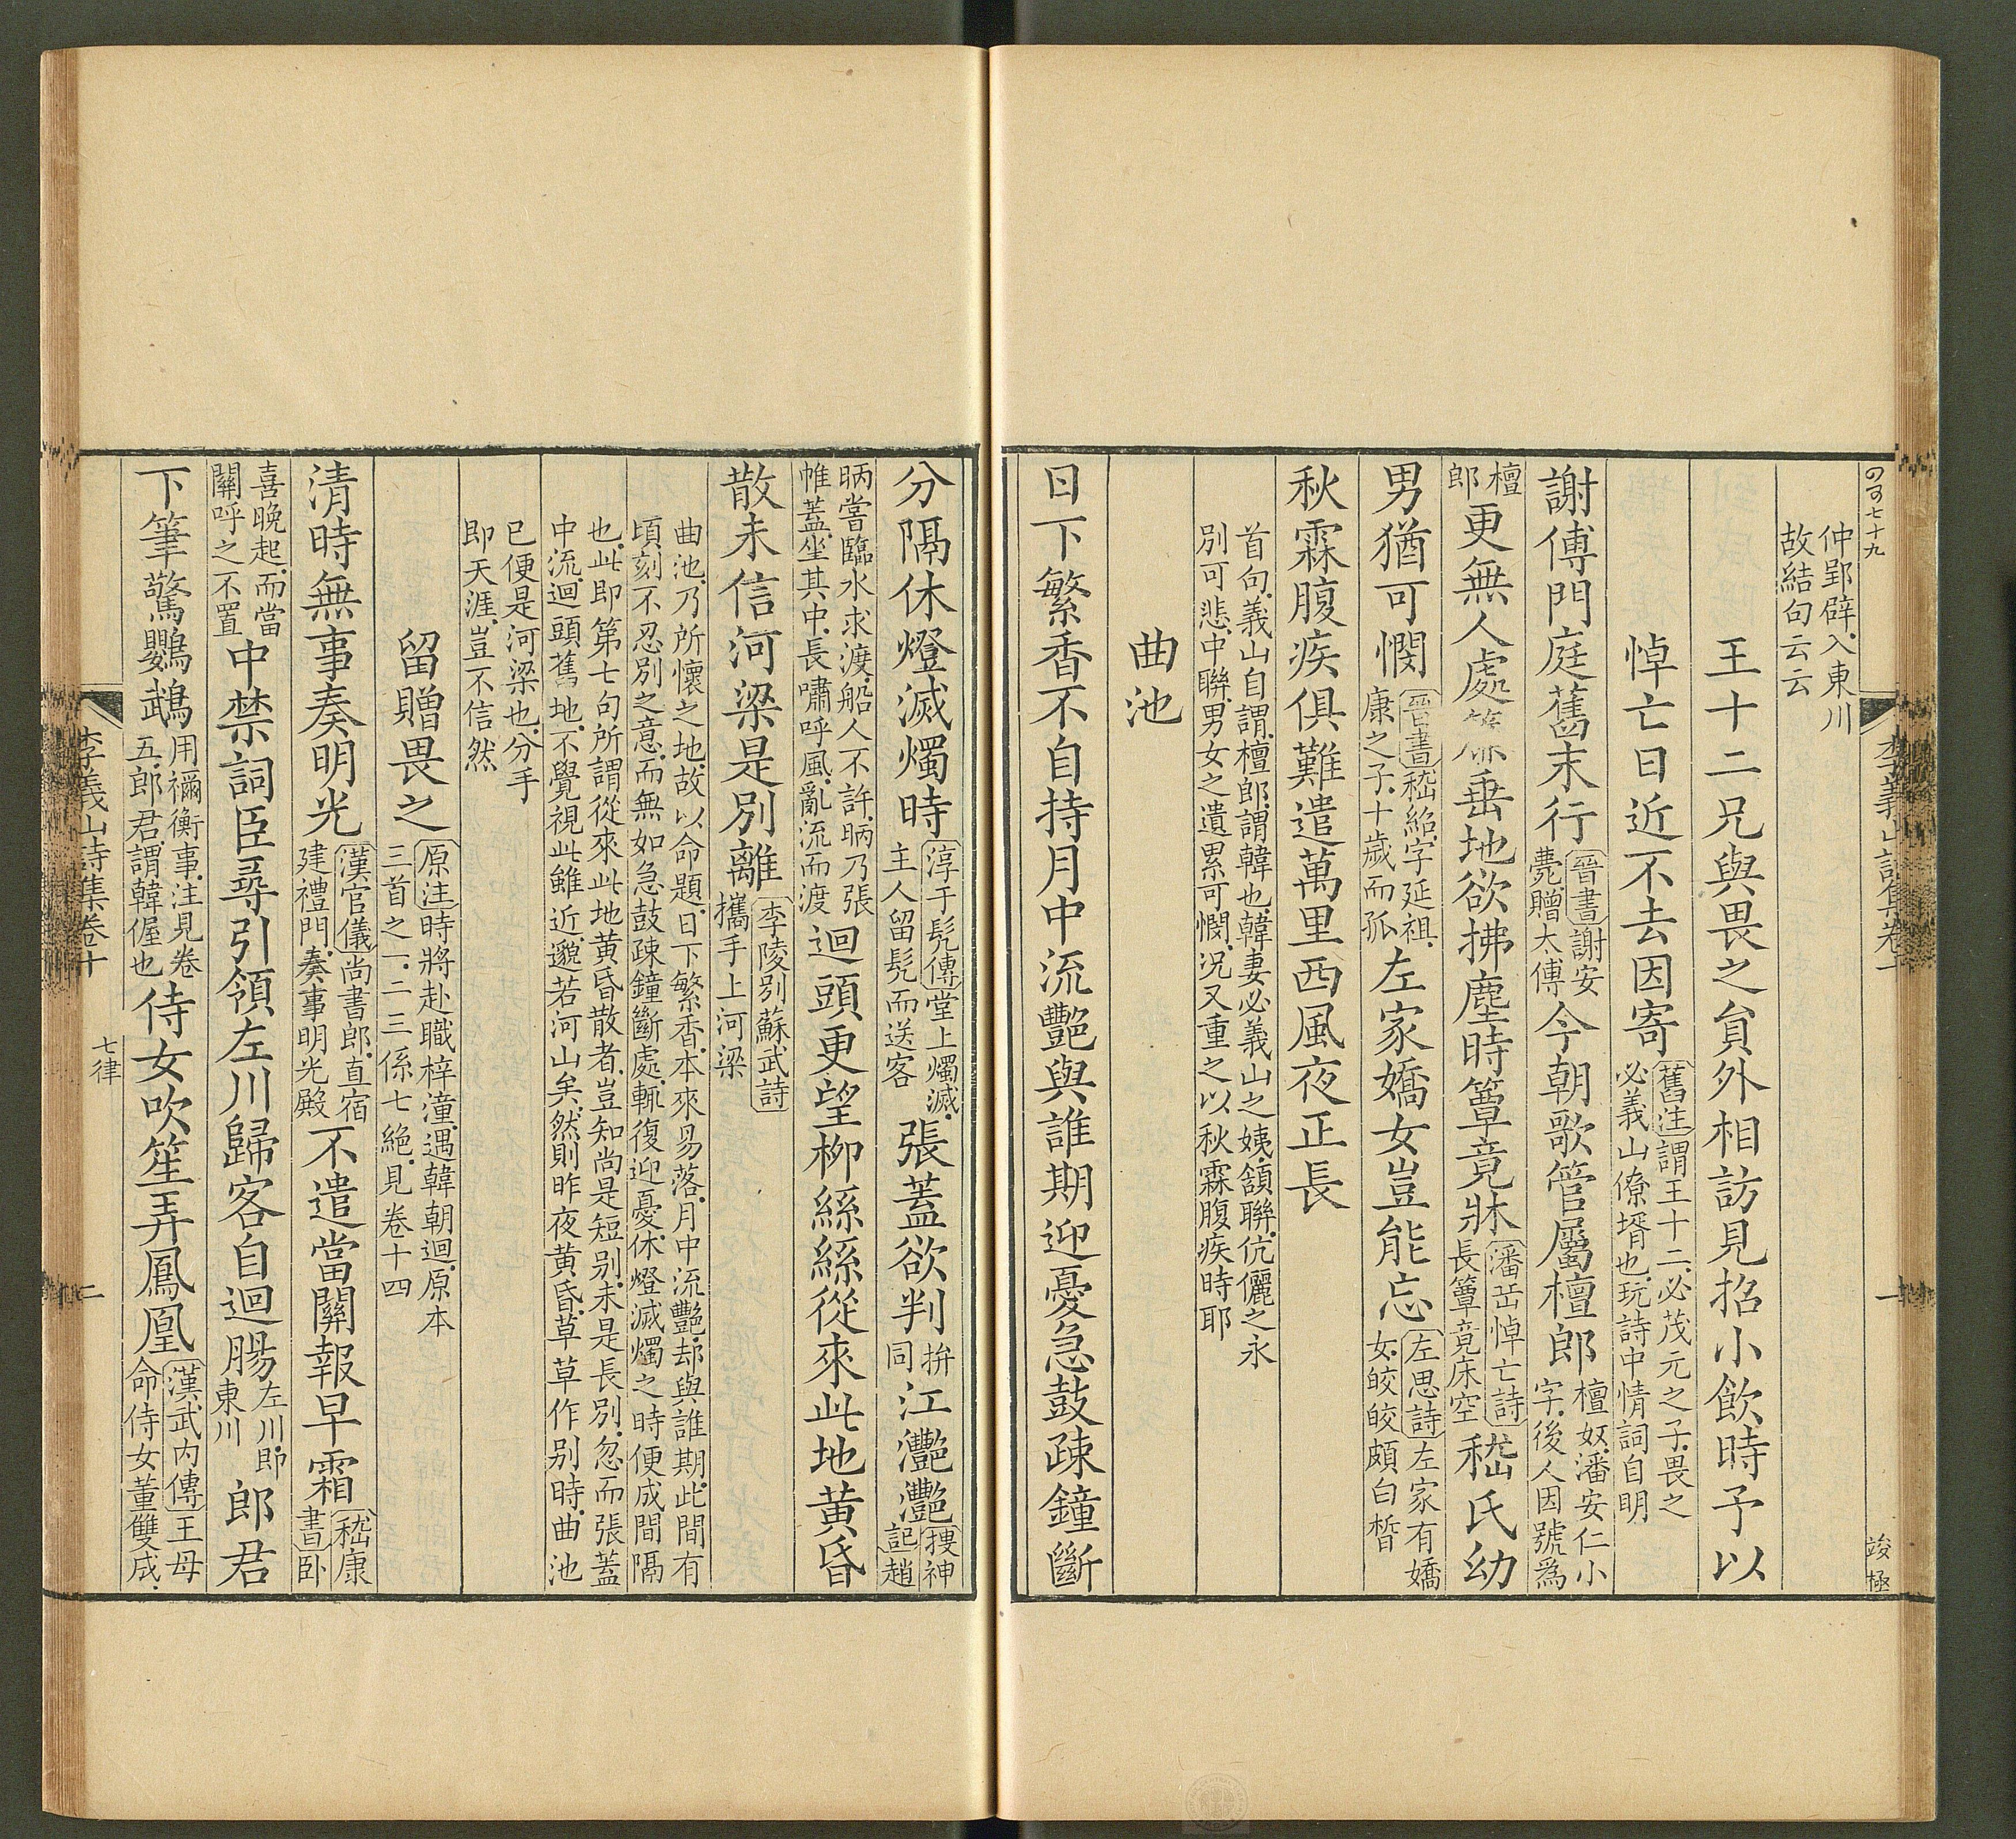 四百七十九
仲郢辟入東川
故結句云云
王十二兄與畏之員外相訪見招小飲時予以
悼亡日近不去因寄
舊注謂王十二必茂元之子畏之
必義山僚壻也玩詩中情詞自明
謝傅門庭舊末行
晉書謝安
薨贈太傅
今朝歌管屬檀郎
檀奴潘安仁小
字後人因號爲
檀
郎
更無人處簾垂地欲拂塵時簟竟牀
潘岳悼亡詩
長簟竟床空
嵇氏幼
男猶可憫
晉書嵇紹字延祖
康之子十歲而孤
左家嬌女豈能忘
左思詩左家有嬌
女皎皎頗白晳
秋霖腹疾俱難遣萬里西風夜正長
首句義山自謂檀郎謂韓也韓妻必義山之姨頷聯伉儷之永
別可悲中聯男女之遺累可憫况又重之以秋霖腹疾時耶
曲池
日下繁香不自持月中流艷與誰期迎憂急鼓疎鐘斷
李義山詩集卷十
一
竣極
分隔休燈滅燭時
淳于髡傳堂上燭滅
主人留髡而送客
張蓋欲判
拚
同
江灧灧
搜神
記趙
昞嘗臨水求渡船人不許昞乃張
帷蓋坐其中長嘯呼風亂流而渡
迴頭更望柳絲絲從來此地黃昏
散未信河梁是別離
李陵別蘇武詩
攜手上河梁
曲池乃所懷之地故以命題日下繁香本來易落月中流艷却與誰期此間有
頃刻不忍別之意而無如急鼓疎鐘斷處輒復迎憂休燈滅燭之時便成間隔
也此即第七句所謂從來此地黃昏散者豈知尚是短別未是長別忽而張蓋
中流迴頭舊地不覺視此雖近邈若河山矣然則昨夜黃昏草草作別時曲池
已便是河梁也分手
即天涯豈不信然
留贈畏之
原注時將赴職梓潼遇韓朝迴原本
三首之一二三係七絕見卷十四
清時無事奏明光
漢官儀尚書郎直宿
建禮門奏事明光殿
不遣當關報早霜
嵇康
書臥
喜晚起而當
關呼之不置
中禁詞臣尋引領左川歸客自迴腸
左川即
東川
郎君
下筆驚鸚鵡
用禰衡事注見卷
五郎君謂韓偓也
侍女吹笙弄鳳凰
漢武內傳王母
命侍女董雙成
李義山詩集卷十
七律
二